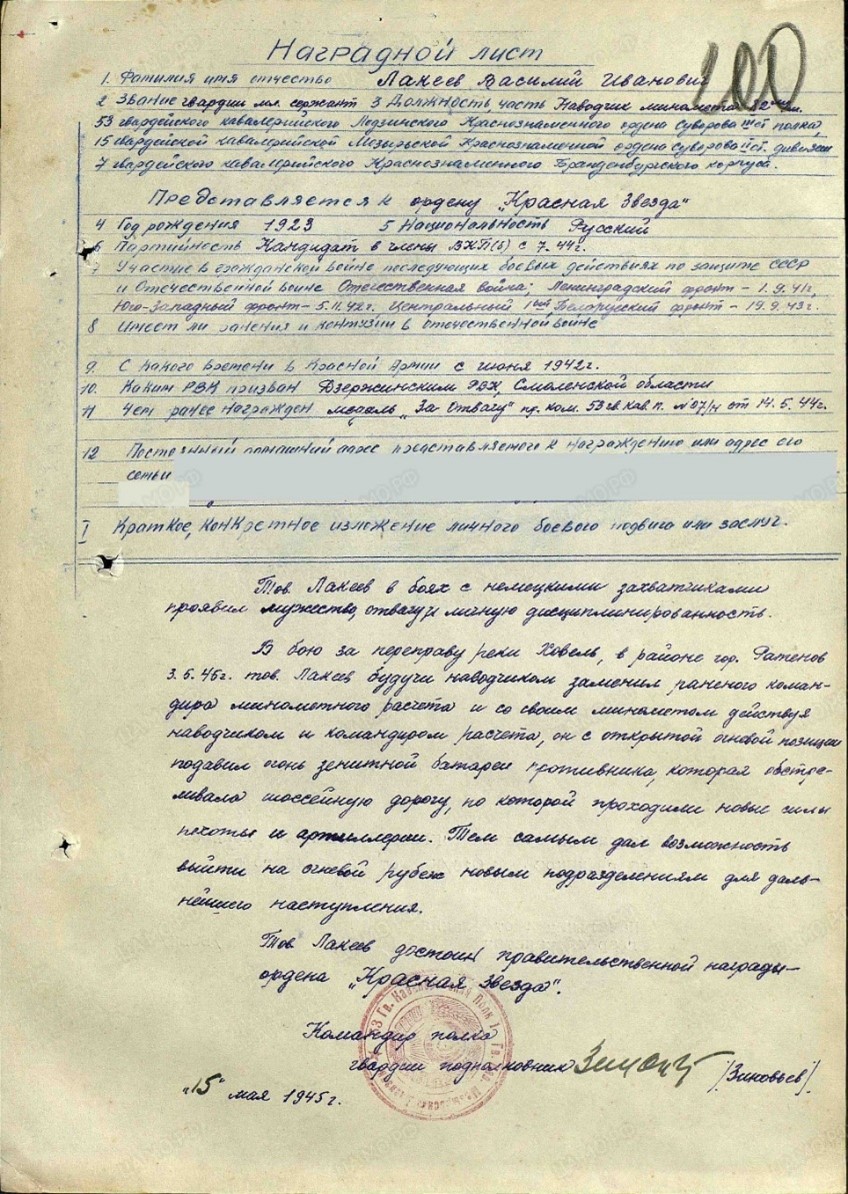 Наградной лист
200
1. Фамилия имя отчество Лакеев Василий Иванович
2 Звание гвардии мл. сержант 3 Должность, часть Наводчик миномета 82 м.м.
53 гвардейского кавалерийского Лодзинского Краснознаменного ордена Суворова III ст полка,
15 гвардейской кавалерийской Мозырьской Краснознаменной ордена Суворова II ст. дивизии
7 гвардейского кавалерийского Краснознаменного Бранденбургского корпуса.
Представляется к ордену "Красная Звезда"
4 Год рождения 1923 5 Национальность Русский
6 Партийность Кандидат в члены ВКП(б) с 7.44г.
7 Участие в гражданской войне последующих боевых действиях по защите СССР
и Отечественной войне Отечественная война: Ленинградский фронт – 1.9.41г,
Юго-Западный фронт – 5.11.42г. Центральный 1 вый Белорусский фронт – 19.9.43г.
8 Имеет ли ранения и контузии в отечественной войне
9. С какого времени в Красной Армии с июня 1942г.
10. Каким РВК призван Дзержинским РВК, Смоленской области
11 Чем ранее награжден медаль "За Отвагу" пр. ком. 53 гв. кав. п. №07/н от 14.5.44г.
12 Постоянный домашний адрес представляемого к награждению или адрес его
семьи
I Краткое, конкретное изложение личного боевого подвига или заслуг.
Тов. Лакеев в боях с немецкими захватчиками
проявил мужество, отвагу и личную дисциплинированность.
В бою за переправу реки Ховель, в районе гор. Ратенов
3.5.45г. тов. Лакеев будучи наводчиком заменил раненого коман-
дира минометного расчета и со своим минометом действуя
наводчиком и командиром расчета, он с открытой огневой позиции
подавил огонь зенитной батареи противника, которая обстре-
ливала шоссейную дорогу, по которой проходили новые силы
пехоты и артиллерии. Тем самым дал возможность
выйти на огневой рубеж новым подразделениям для даль-
нейшего наступления.
Тов Лакеев достоин правительственной награды –
ордена "Красная Звезда".
Командир полка
гвардии подполковник /Зиновьев/
"15" мая 1945г.